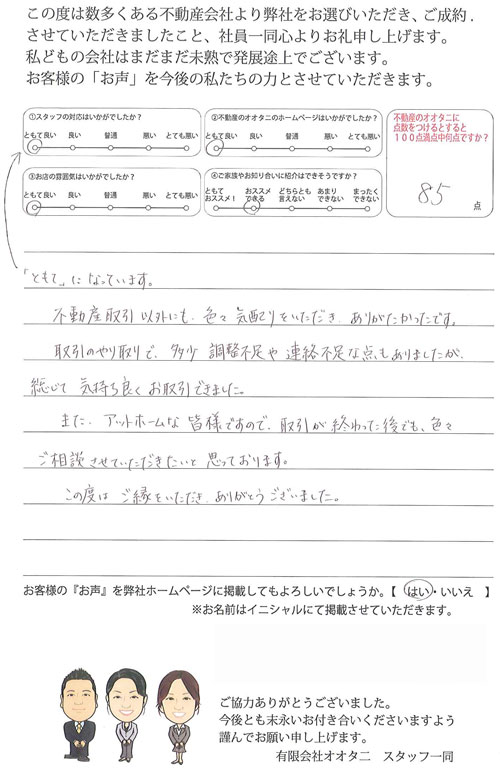 この度は数多くある不動産会社より弊社をお選びいただき、ご成約.
させていただきましたこと、社員一同心よりお礼申し上げます。
私どもの会社はまだまだ未熟で発展途上でございます。
お客様の「お声」を今後の私たちの力とさせていただきます。
①スタッフの対応はいかがでしたか？
ともて良い 良い 普通 悪い とても悪い
②不動産のオオタニのホームページはいかがでしたか？
ともて良い 良い 普通 悪い とても悪い
不動産のオオタニに
点数をつけるとすると
１００点満点中何点ですか？
85 点
③お店の雰囲気はいかがでしたか？
ともて良い 良い 普通 悪い とても悪い
④ご家族やお知り合いに紹介はできそうですか？
とても
オススメ！
オススメ
できる
どちらとも
言えない
あまり
できない
まったく
できない
「ともて」になっています。
不動産取引以外にも、色々気配りをいただき、ありがたかったです。
取引のやり取りで、多少 調整不足や連絡不足な点もありましたが、
総じて気持ち良くお取引できました。
また、アットホームな皆様ですので、取引が終わった後でも、色々
ご相談させていただきたいと思っております。
この度はご縁をいただき、ありがとうございました。
お客様の『お声』を弊社ホームページに掲載してもよろしいでしょうか。【 はい・いいえ 】
※お名前はイニシャルにて掲載させていただきます。
ご協力ありがとうございました。
今後とも末永いお付き合いくださいますよう
謹んでお願い申し上げます。
有限会社オオタニ スタッフ一同